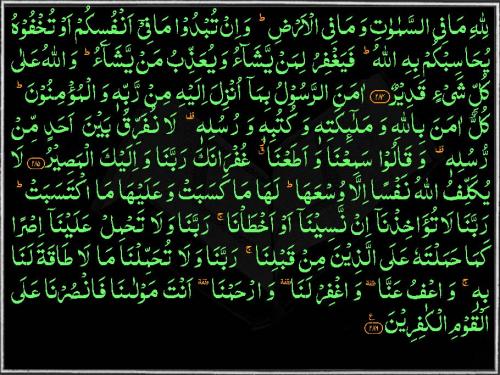 لِلّٰهِ مَا فِی السَّمٰوٰتِ وَ مَا فِی الْاَرْضِ ؕ وَ اِنْ تُبْدُوْا مَا فِیْۤ اَنْفُسِكُمْ اَوْ تُخْفُوْهُ
یُحَاسِبْكُمْ بِهِ اللّٰهُ ؕ فَیَغْفِرُ لِمَنْ یَّشَآءُ وَ یُعَذِّبُ مَنْ یَّشَآءُ ؕ وَ اللّٰهُ عَلٰی
كُلِّ شَیْءٍ قَدِیْرٌ ﴿۲۸۴﴾ اٰمَنَ الرَّسُوْلُ بِمَاۤ اُنْزِلَ اِلَیْهِ مِنْ رَّبِّهٖ وَ الْمُؤْمِنُوْنَ ؕ
كُلٌّ اٰمَنَ بِاللّٰهِ وَ مَلٰٓىِٕكَتِهٖ وَ كُتُبِهٖ وَ رُسُلِهٖ ۫ لَا نُفَرِّقُ بَیْنَ اَحَدٍ مِّنْ
رُّسُلِهٖ ۫ وَ قَالُوْا سَمِعْنَا وَ اَطَعْنَا ٭۫ غُفْرَانَكَ رَبَّنَا وَ اِلَیْكَ الْمَصِیْرُ ﴿۲۸۵﴾ لَا
یُكَلِّفُ اللّٰهُ نَفْسًا اِلَّا وُسْعَهَا ؕ لَهَا مَا كَسَبَتْ وَ عَلَیْهَا مَا اكْتَسَبَتْ ؕ
رَبَّنَا لَا تُؤَاخِذْنَاۤ اِنْ نَّسِیْنَاۤ اَوْ اَخْطَاْنَا ۚ رَبَّنَا وَ لَا تَحْمِلْ عَلَیْنَاۤ اِصْرًا
كَمَا حَمَلْتَهٗ عَلَی الَّذِیْنَ مِنْ قَبْلِنَا ۚ رَبَّنَا وَ لَا تُحَمِّلْنَا مَا لَا طَاقَةَ لَنَا
بِهٖ ۚ وَ اعْفُ عَنَّا ٝ وَ اغْفِرْ لَنَا ٝ وَ ارْحَمْنَا ٝ اَنْتَ مَوْلٰىنَا فَانْصُرْنَا عَلَی
الْقَوْمِ الْكٰفِرِیْنَ ﴿۲۸۶﴾